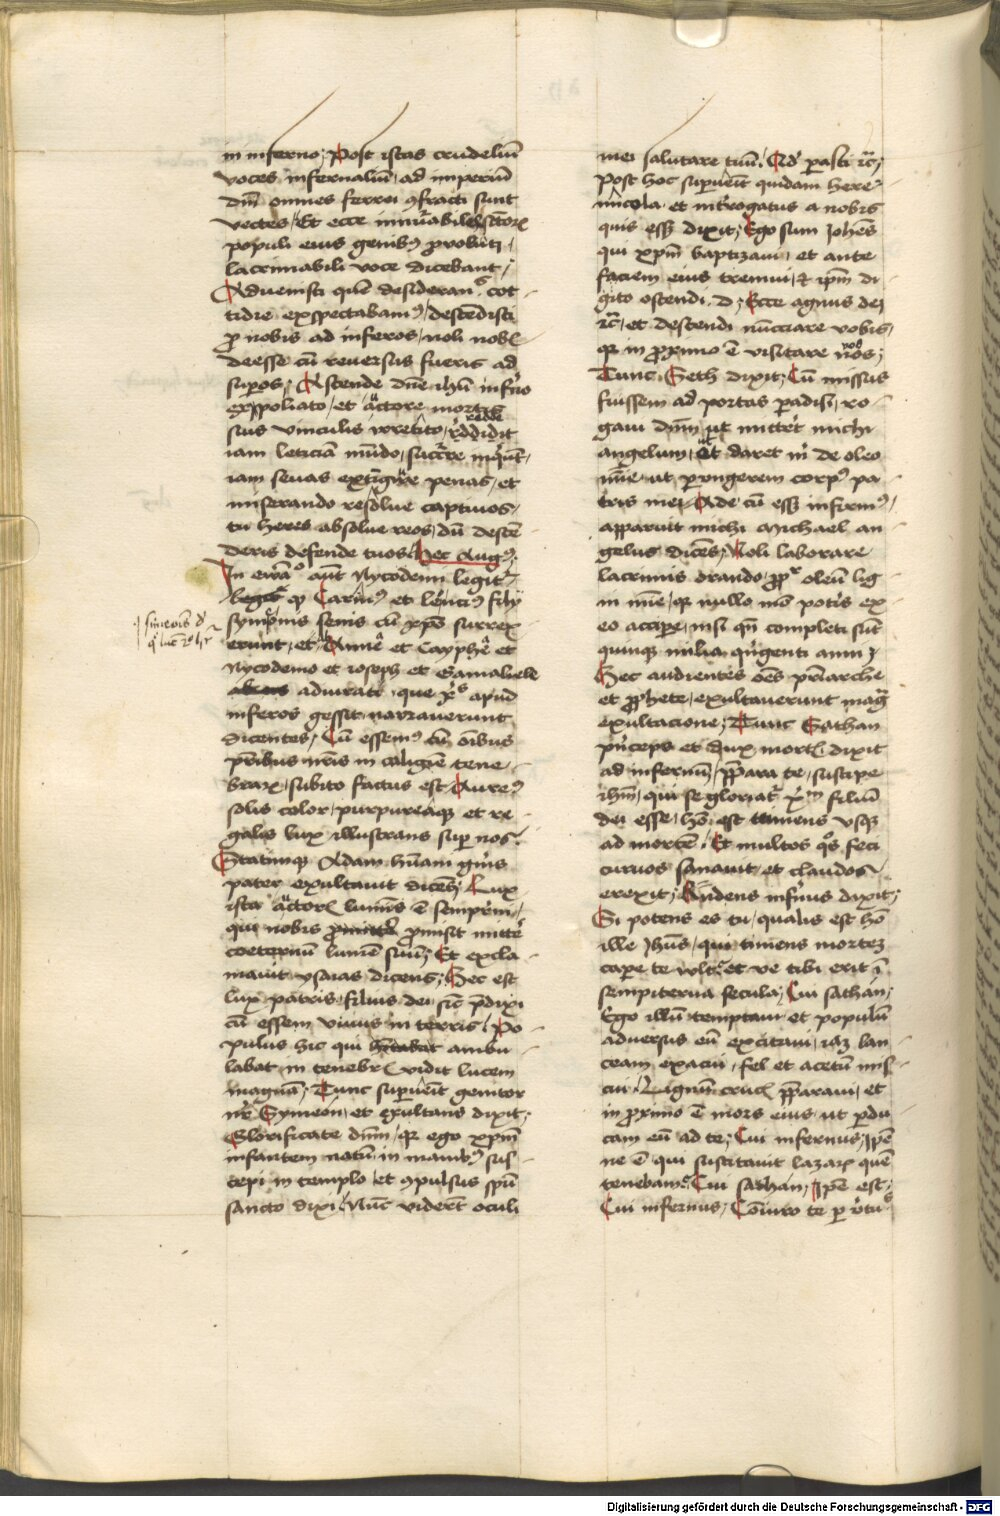 in inferno; Post istas crudeliũ
voces infernaliũ, ad imperiũ
dñi omnes ferrei ꝯfracti sunt
vectes, Et ecce inn̄uabiles sctōrꝝ
populi eius genibꝰ ꝓvoluti,
lacrimabili voce dicebant,
Aduenisti quē desiderauimꝰ cot
tidie exspectabamꝰ, descēdisti
ꝓ nobis ad inferos, noli nobis
deesse cũ reuersus fueris ad
suꝑos, Ascende dñe ihũ inferno
exspoliato, et auctore mortis
suis vinculis irretito, redde
iam leticiā mũdo, succurre
iam seuas extingwe penas, et
miserando resolue captiuos,
tu heres absolue reos, dũ descē
deris defende tuos Hec Augꝰ.
In ewāgo aũt Nycodemi legitur
qꝫ Carinꝰ et leuciꝰ filij
symeonis senis cũ xp̄o surrex
erunt, et Anne et Cayphe et
Nycodemo et ioseph et Gamaliele
adiurati, que xp̄s apud
inferos gessit narrauerunt
dicentes, Cũ essemꝰ cũ oībus
pr̄ibus nr̄is in caligīe tene
braꝝ, subito factus est Aureꝰ
solis color, purpureaqꝫ et re
galis lux illustrans super nos.
Statimqꝫ Adam hũani gn̄is
pater exultauit dicēs, Lux
ista auctoris lumīs ē sempitnī,
qui nobis ꝓmisit mittere
coeternũ lumē suũ, Et excla
mauit ysaias dicens, Hec est
lux patris, filius dei sic̄ p̄dixi
cũ essem viuus in terris, Po
pulus hic qui ambu
labat in tenebris vidit lucem
magnā, Tunc suꝑueīt genitor
nr̄ Symeon, et exultans dixit,
Glorificate dñm, qꝛ ego xp̄m
infantem natũ in manibꝰ sus
cepi in templo et ꝯpulsus spũ
sancto dixi, Nũc viderũt oculi
mei salutare tuũ,
Post hoc suꝑueīt quidam here
micola et int̄rogatus a nobis
quis esset dixit, Ego sum Iohēs
qui xp̄m baptizaui, et ante
faciem eius preiui, et ip̄m di
gito ostendi, d, Ecce agnus dei
zc̄, et descendi nũcciare vobis,
qꝛ in ꝓximo ē visitare vos,
Tunc Seth dixit, Cũ missus
fuissem ad portas ꝑadisi, ro
gaui dñm ut mittēt michi
angelum, ut daret m̄ de oleo
mīe ut ꝑungerem corpꝰ pa
tris mei Ade cũ esset infirmꝰ,
apparuit michi Michael an
gelus dicēs, Noli laborare
lacrimis orando, ꝓpt̄ oleũ lig
ni mīe, qꝛ nullo mō potis ex
eo accipe, nisi qn̄ completi sũt
quinqꝫ milia quigenti anni,
Hec audientes oēs pr̄iarche
et ꝓphete, exultauerunt magna
exultacione, Tunc Sathan
prīceps et Dux mortis dixit
ad infernũ, p̄para te, suscipe
ihm̄, qui se gloriat xp̄m filiũ
dei esse, hō est timens vsqꝫ
ad mortē, Et multos qͦs feci
curuos sanauit, et claudos
erexit, Rn̄dens infn̄us dixit,
Si potens es tu, qualis est hō
ille Ihũs, qui timens mortē
cape te vult, et ve tibi erit ī
sempiterna secula, Cui sathan,
Ego illũ temptaui et populũ
aduersus eũ excitaui, iaꝫ lan
ceam exacui, fel et acetũ mis
cui Lignum crucis p̄paraui, et
in ꝓximo ē mors eius, ut ꝑdu
cam eũ ad te, Cui infernus, Ip̄e
ne ē qui suscitauit lazarũ quē
tenebamꝰ, Cui sathan, Ip̄e est,
Cui infernus, Coniuro te ꝑ v̄tutes
Digitalisierung gefördert durch die Deutsche Forschungsgemeinschaft - DFG